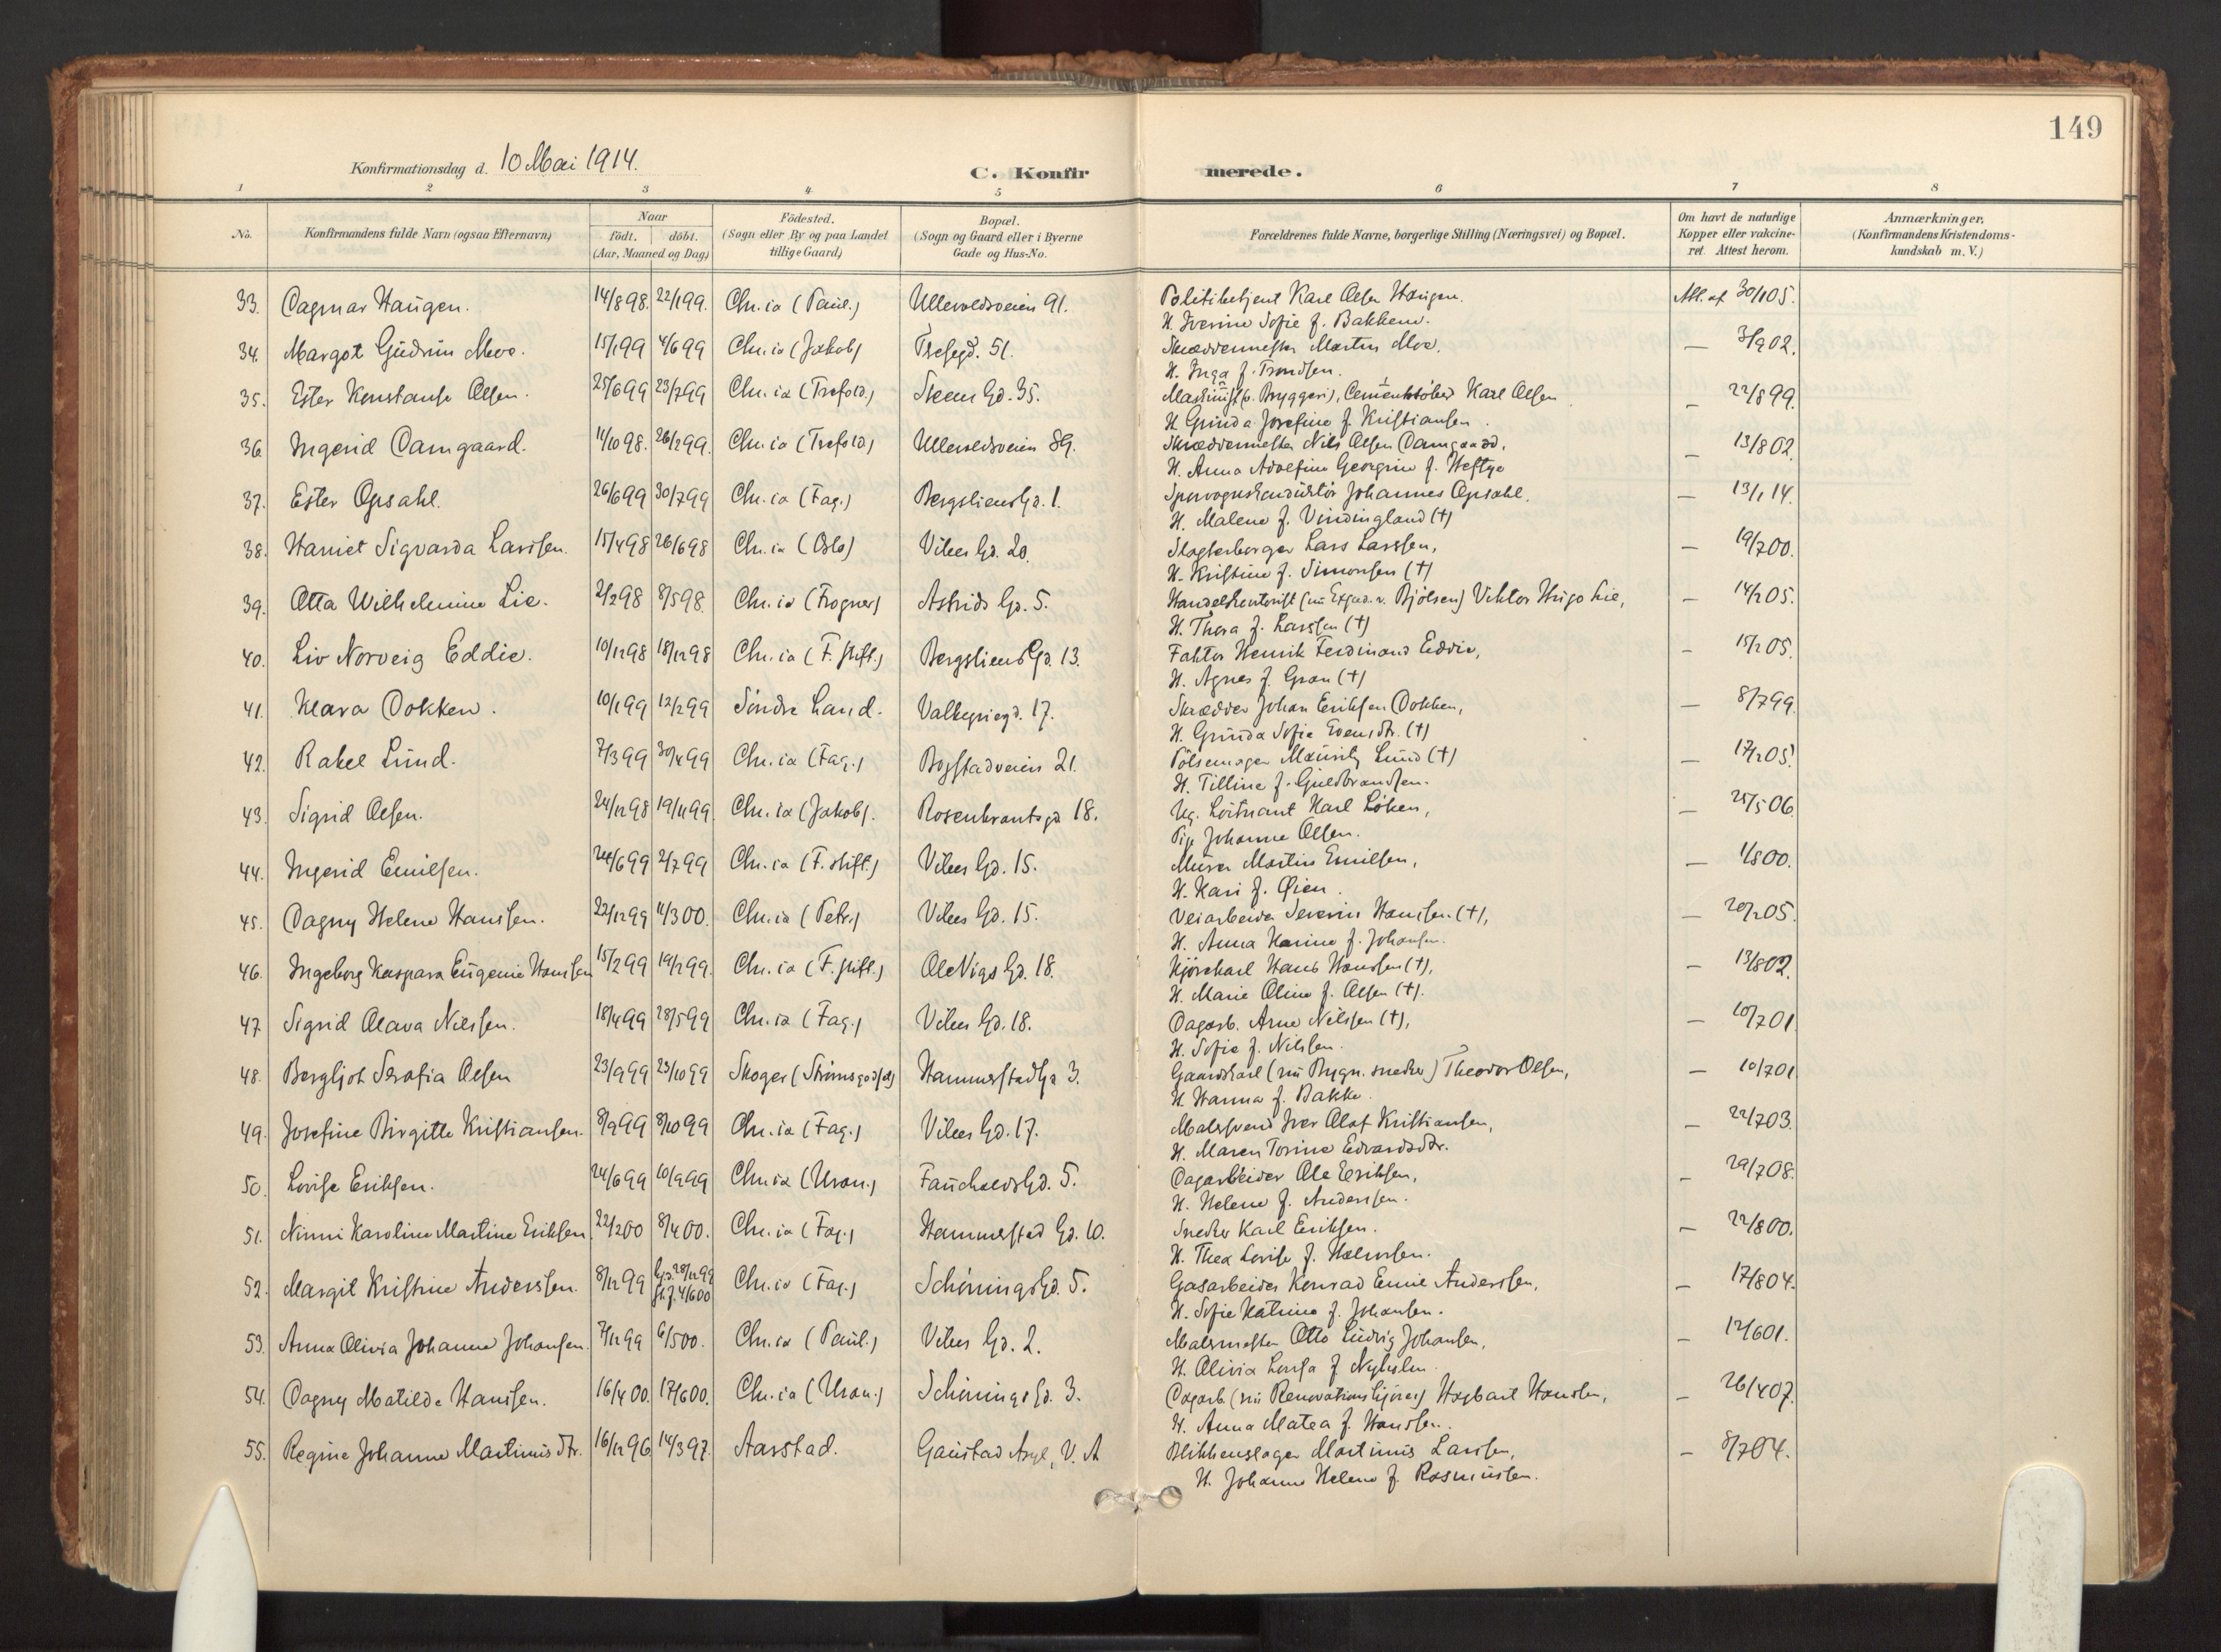 149
Konfirmationsdag d. 10 Mai 1914.
C. Konfir merede.
1 2 3 4 5 6 7 8
No.
Konfirmandens fulde Navn (ogsaa Efternavn)
Naar
födt. döbt.
(Aar, Maaned og Dag)
Födested.
(Sogn eller By og paa Landet
tillige Gaard)
Bopæl.
(Sogn og Gaard eller i Byerne
Gade og Hus-No.
Forældrenes fulde Navne, borgerlige Stilling (Næringsvei) og Bopæl.
Om havt de naturlige
Kopper eller vakcine-
ret. Attest herom.
Anmærkninger.
(Konfirmandens Kristendoms-
kundskab m. V.)
33. Dagmar Haugen. 14/8 98. 22/1 99. Chr.ia (Paul.) Ullevoldsveien 91. Politibetjent Karl Olsen Haugen. Att. af 30/1 05.
H. Iverine Sofie f. Bakkene.
34. Margot Gudrun Moe. 15/1 99 4/6 99 Chr.ia (Jakob) 51. Skræddermester Martin Moe. — 3/9 02.
H. Inga f. Trondsen.
35. Ester Konstanse Olsen. 25/6 99 23/7 99 Chr.ia (Trefold.) Steens Gd. 35. Maskinist (v. Bryggeri), Karl Olsen — 22/8 99.
H. Gunda Josefine f. Kristiansen.
36. Ingerid Damgaard. 11/10 98. 26/2 99. Chr.ia (Trefold) Ullevoldsveien 89. Skræddermester Nils Olsen Damgaard. — 13/8 02.
H. Anna Adolfine Georgine f. Heftye
37. Ester Opsahl. 26/6 99 30/7 99 Chr.ia (Fag.) Bergsliens Gd. 1. Sporvognskonduktör Johannes Opsahl. — 13/1 14.
H. Malene f. Vindingland (†)
38. Harriet Sigvarda Larssen. 15/4 98 26/6 98 Chr.ia (Oslo) Vibes Gd. 20. Slagterborger Lars Larssen, — 19/7 00.
H. Kristine f. Simonsen (†)
39. Otta Wilhelmine Lie. 2/2 98 8/5 98. Chr.ia (Frogner) Astrids Gd. 5. Handelskontorist (nu Exped. v. Bjölsen) Viktor Hugo Lie, — 14/2 05.
H. Thora f. Larssen (†)
40. Liv Norveig Eddie. 10/12 98 18/12 98 Chr.ia (F. stift.) Bergsliens Gd. 13. Faktor Henrik Ferdinand Eddie, — 15/2 05.
H. Agnes f. Gran (†)
41. Klara Dokken. 10/1 99 12/2 99 Söndre Land. Valkyriegd. 17. Skrædder Johan Eriksen Dokken, — 8/7 99.
H. Gunda Sofie Evensdtr. (†)
42. Rakel Lund. 7/3 99 30/4 99 Chr.ia (Fag.) Bogstadveien 21. Pölsemager Mauritz Lund (†) — 17/2 05.
H. Tilline f. Guldbrandsen.
43. Sigrid Olsen. 24/12 98 19/11 99. Chr.ia (Jakob). Rosenkrantsgd 18. Ug. Löitnant Karl Löken, — 25/5 06.
Pige Johanne Olsen.
44. Ingerid Emilsen. 24/6 99 2/7 99 Chr.ia (F. stift.) Vibes Gd. 15. Murer Martin Emilsen, — 1/8 00.
H. Kari f. Øien.
45. Dagny Helene Hanssen. 22/12 99 11/3 00. Chr.ia (Petr.) Vibes Gd. 15. Veiarbeider Severin Hanssen (†), — 20/2 05.
H. Anna Karine f. Johansen.
46. Ingeborg Kaspara Eugenie Hanssen 15/2 99 19/2 99. Chr.ia (F. stift.) Ole Vigs Gd. 18. Kjörekarl Hans Hanssen (†), — 13/8 02.
H. Marie Oline f. Olsen (†).
47. Sigrid Olava Nilssen. 18/4 99 28/5 99 Chr.ia (Fag.) Vibes Gd. 18. Dagarb. Arne Nilssen (†), — 10/7 01.
H. Sofie f. Nilssen.
48. Bergljot Serafia Olsen 23/9 99 23/10 99 Skoger (Strömsgodset) Hammerstad Gd. 3. Gaardskarl (nu Bygn. snedker) Theodor Olsen, — 10/7 01
H. Hanna f. Bakke.
49. Josefine Birgitte Kristiansen. 8/9 99 8/10 99 Chr.ia (Fag.) Vibes Gd. 17. Malersvend Iver Olaf Kristiansen, — 22/7 03.
H. Maren Torine Edvardsdtr.
50. Lovise Eriksen. 24/6 99 10/9 99 Chr.ia (Uran.) Fauchalds Gd. 5. Dagarbeider Ole Eriksen, — 29/7 08.
H. Helene f. Anderssen.
51. Ninni Karoline Martine Eriksen 22/2 00 8/4 00. Chr.ia (Fag.) Hammerstad Gd. 10. Snedker Karl Eriksen. — 22/8 00.
H. Thea Lovise f. Halvorsen.
52. Margit Kristine Anderssen. 8/12 99 hj.d. 28/12 99 Chr.ia (Fag.) Schönings Gd. 5. Gasarbeider Konrad Emil Anderssen, — 17/8 04.
st.f. 4/6 00 H. Sofie Katrine f. Johansen.
53. Anna Olivia Johanne Johansen. 7/12 99 6/5 00. Chr.ia (Paul.) Vibes Gd. 2. Malermester Otto Ludvig Johansen, — 12/6 01.
H. Olivia Lovisa f.
54. Dagny Matilde Hanssen. 16/4 00. 17/6 00. Chr.ia (Uran.) Schönings Gd. 3. Dagarb. (nu Renovationskjörer) Hagbart Hanssen, — 26/4 07.
H. Anna Matea f. Hanssen.
55. Regine Johanne Martinusdtr. 16/12 96. 14/3 97. Aarstad. Gaustad Asyl, V. A Blikkenslager Martinus Larssen, — 8/7 04.
H. Johanne Helene f. Rasmussen.